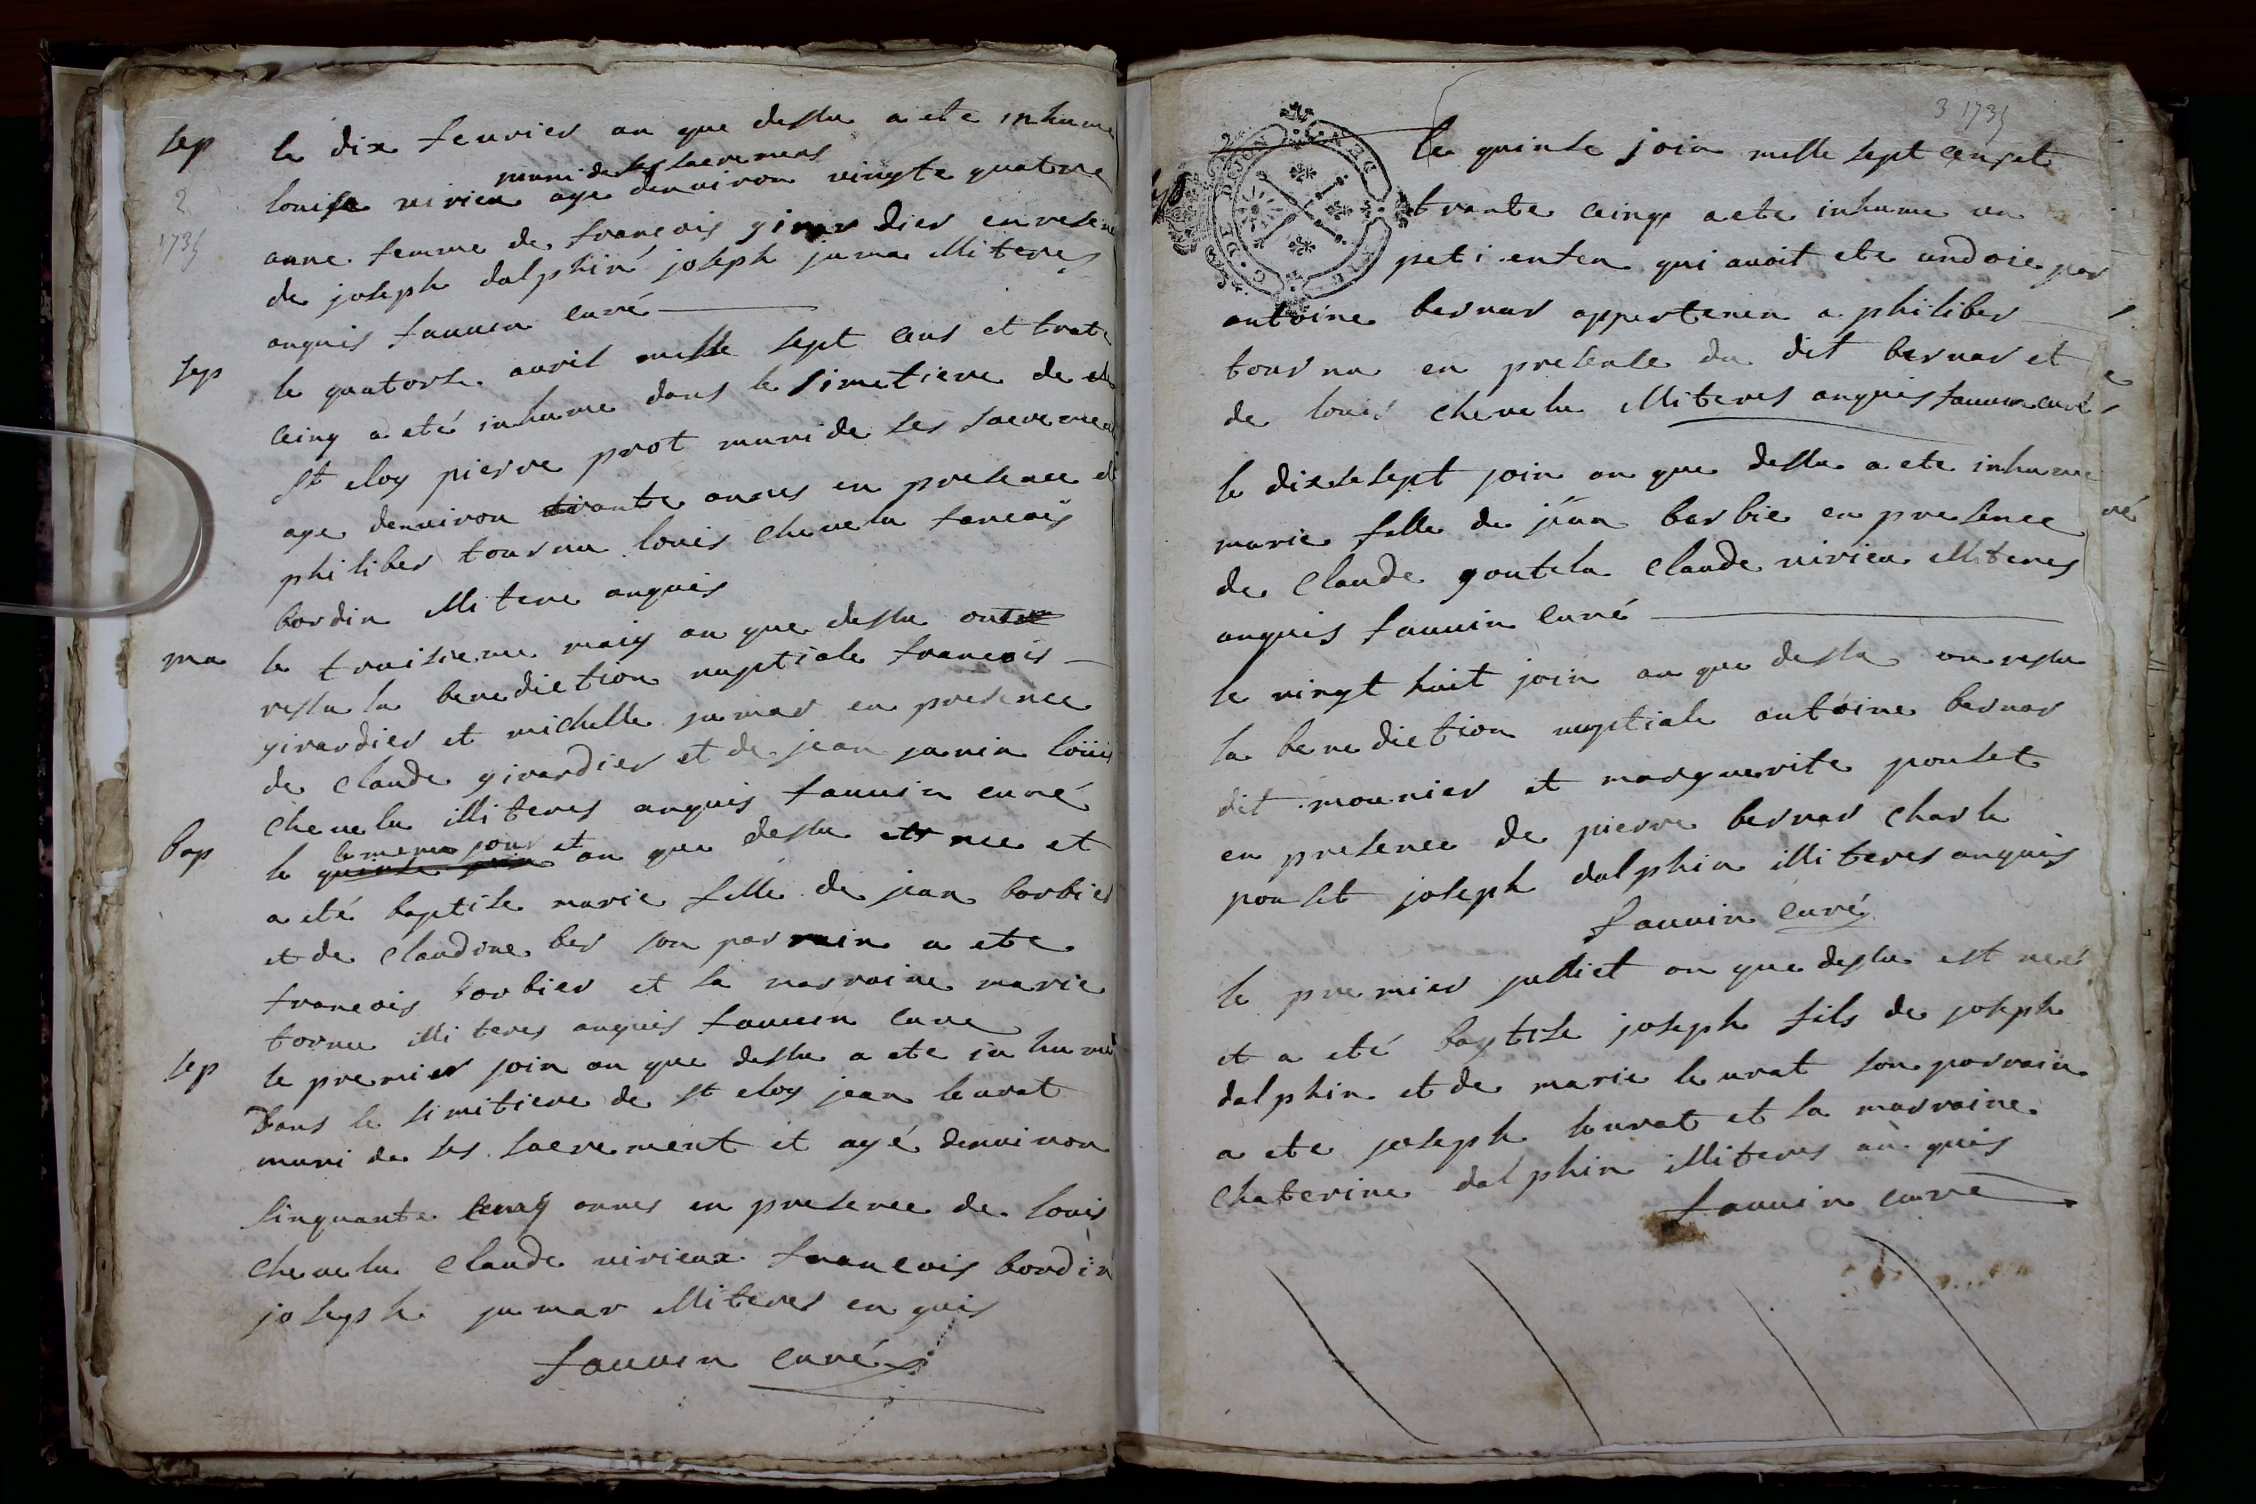 sep
2
1735
le dix feuvrier an que dessu a ete inhume
muni de ses sacremens
louise vivieu age denviron vingte quatre
anne femme de francois girardier en presen
de joseph dalphin joseph jumar illiteres
anquis fauuin curé
sep
le quatorse auril mille sept cens et trate
cinq a eté inhume dans le simetiere de
st eloy pierre prot muni de ses sacremen
age denuiron trante annes en presence de
philiber tournu louis chevelu francois
bordin illitere anquis
ma
le troisieme maiy an que dessu ont
ressu la benediction nuptiale francois
girardier et michelle jumar en presence
de claude girardier et de jean janin louis
chevelu illiteres anquis fauuin curé
bap
le meme jour et
le quinse join an que dessu est nee et
a eté baptise marie fille de jean barbier
et de claudine ber son parrain a ete
francois barbier et la marraine marie
tornu illiteres anquis fauuin cure
sep
le premier join an que dessu a ete inhumé
dans le simitiere de st eloy jean leurat
muni de ses sacrement et agé denuiron
sinquante cinq annes en presence de louis
chevelu claude vivieux francois bordin
joseph jumar illiteres enquis
fauuin curé
3 1735
le quinse join mille sept cens et
trante cinq a ete inhume un
peti enfen qui auoit ete undoie par
antoine bernar appartenen a philiber
tournu en presense du dit bernar et
de louis chevelu illiteres anquis fauuin curé
le dixsesept join an que dessu a ete inhume
marie fille de jean barbie en presence
de claude goutela claude vivieu illiteres
anquis fauuin curé
le vingt huit join an que dessu on ressu
la benediction nuptiale antoine bernar
dit mounier et marguerite pouset
en presence de pierre bernar charle
pouset joseph dalphin illiteres anquis
fauuin curé
le premier julliet an que dessu est neé
et a eté baptise joseph fils de joseph
dalphin et de marie leurat son parrain
a ete joseph leurat et la marraine
chaterine dalphin illiteres anquis
fauuin curé